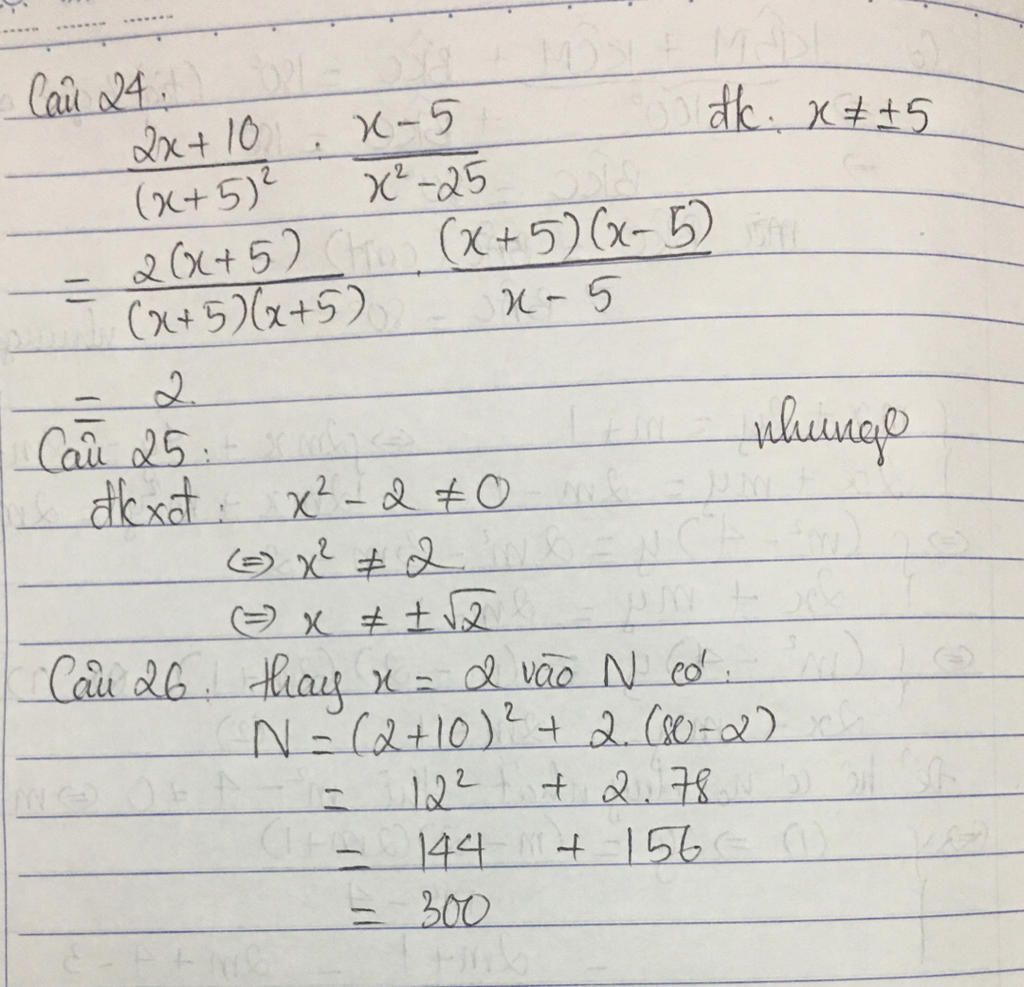 Câu 24:
2x+10/(x+5)² : x-5/x²-25 đk: x ≠ ±5
= 2(x+5)/(x+5)(x+5) . (x+5)(x-5)/x-5
= 2
nhungo
Câu 25:
đkxđ: x² - 2 ≠ 0
⇔ x² ≠ 2
⇔ x ≠ ±√2
Câu 26: thay x = 2 vào N có:
N = (2+10)² + 2.(80-2)
= 12² + 2.78
= 144 + 156
= 300